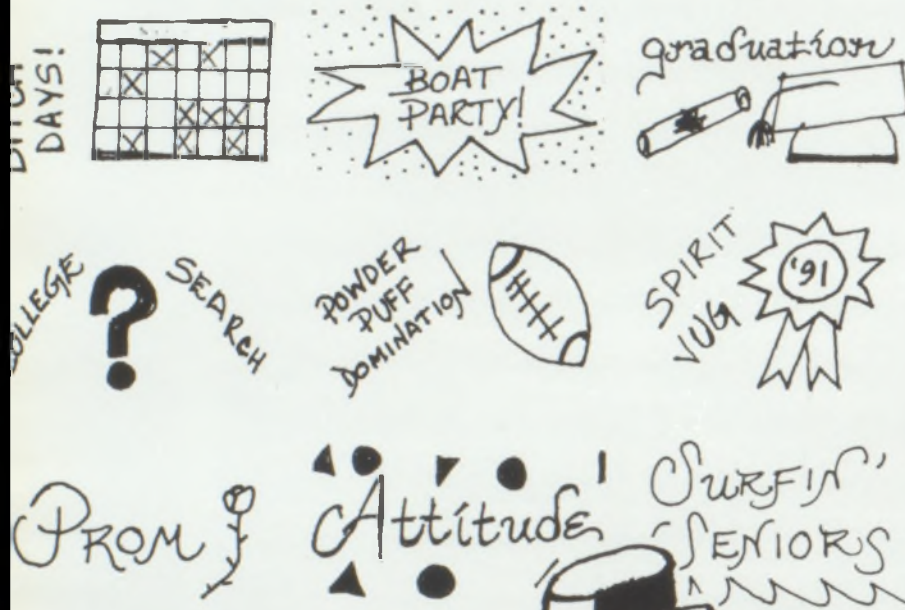 DAYS!
BOAT
PARTY!
graduation
COLLEGE
?
SEARCH
POWDER
PUFF
DOMINATION
SPIRIT
VUG
'91
PROM
Attitude
SURFIN'
SENIORS